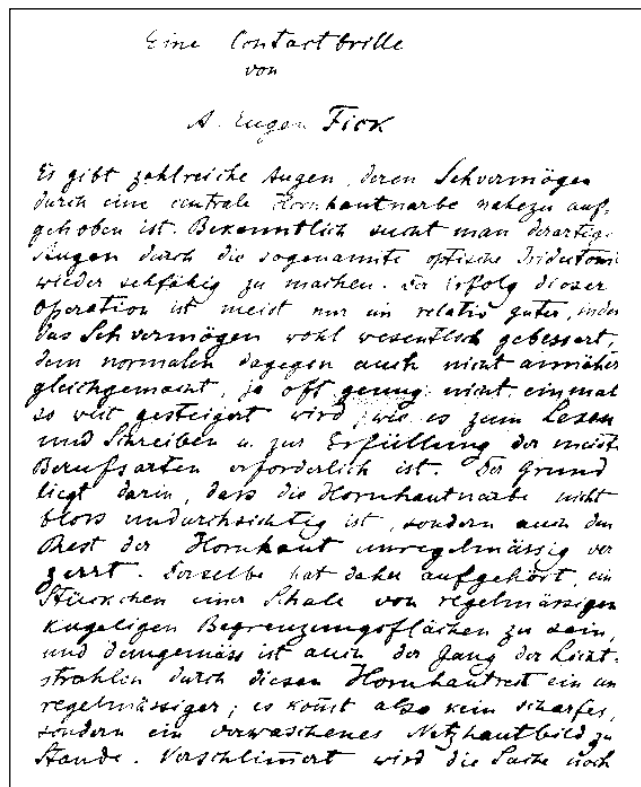 Eine Contactbrille
von
A. Eugen Fick
Es gibt zahlreiche Augen, deren Sehvermögen
durch eine centrale Hornhautnarbe nahezu auf-
gehoben ist. Bekanntlich sucht man derartige
Augen durch die sogenannte optische Iridectomie
wieder sehfähig zu machen. Der Erfolg dieser
Operation ist meist nur ein relativ guter, indem
das Sehvermögen wohl wesentlich gebessert,
dem normalen dagegen auch nicht annäher
gleichgemacht, ja oft genug nicht einmal
so weit gesteigert wird, wie es zum Lesen
und Schreiben u. zur Erfüllung der meist
Berufsarten erforderlich ist. Der Grund
liegt darin, dass die Hornhautnarbe nicht
bloss undurchsichtig ist, sondern auch den
Rest der Hornhaut unregelmässig ver
zerrt. Derselbe hat daher aufgehört, ein
Stückchen einer Schale von regelmässigen
kugeligen Begrenzungsflächen zu sein,
und demgemäss ist auch der Gang der Licht-
strahlen durch diesen Hornhautrest ein un
regelmässiger; es kom̅t also kein scharfes,
sondern ein verwaschenes Netzhautbild zu
Stande. Verschlim̅ert wird die Sache noch